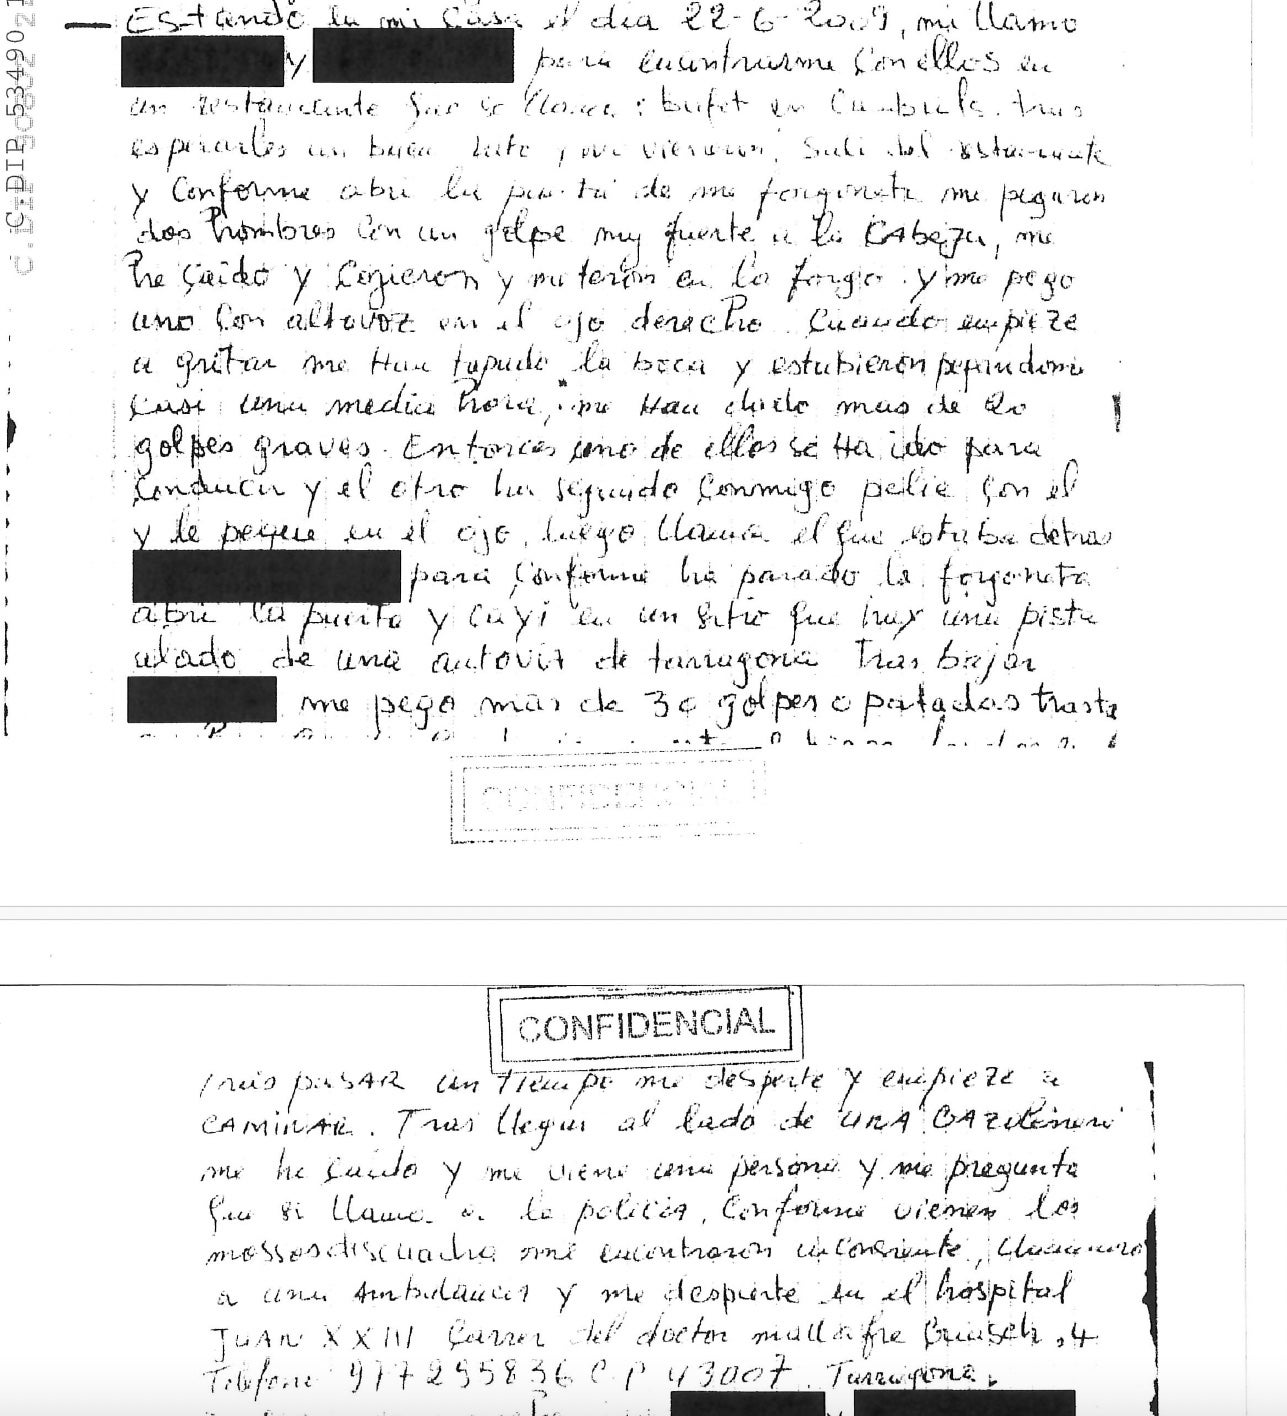 C.DIP 53490
— Estando en mi casa el dia 22-6-2009, mi llamo
y para encontrarme con ellos en
un restaurante que se llama: bufet en Cambrils. tras
esperarles un buen rato, y no vieneron, Sali del restaurante
y conforme abri la puerta de me forgoneta me pegaron
dos hombres con un golpe muy fuerte a la CABEZA, me
he caido y cogieron y meteron en la forgo. y me pego
uno con altovoz en el ojo derecho. Cuando empieze
a gritar me Han tapado la boca y estubieron pegandome
casi una media hora, me Han dado mas de 20
golpes graves. Entonces uno de ellos se Ha ido para
conducir y el otro ha seguido conmigo pelie con el
y le pegue en el ojo, luego llama el que estaba detras
para conforme ha parado la forgoneta
abri la puerta y cayi en un sitio que hay una pista
alado de una autovia de tarragona Tras bajar
me pego mas de 30 golpes o patadas
CONFIDENCIAL
CONFIDENCIAL
tras pasar un tiempo me desperte y empieze a
CAMINAR. Tras llegar al lado de UNA GAZolineri
me he caido y me viene una persona y me pregunta
que si llama a la policia, Conforme vienen los
mossosdiscuadra me encontraron inconsciente, llamaron
a una Ambulancia y me despierte en el hospital
JUAN XXIII Carrer del doctor mallafre Guasch, 4
Telefono 977 295836 C.P 43007. Tarragona.
y